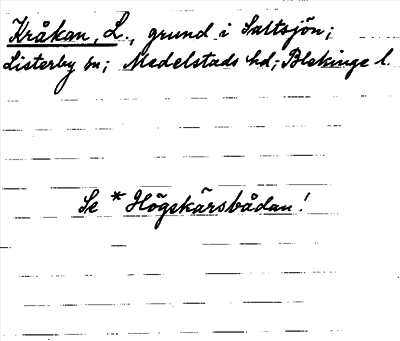 Kråkan, L., grund i Saltsjön;
Listerby sn; Medelstads hd; Blekinge l.
Se * Högskärsbådan!